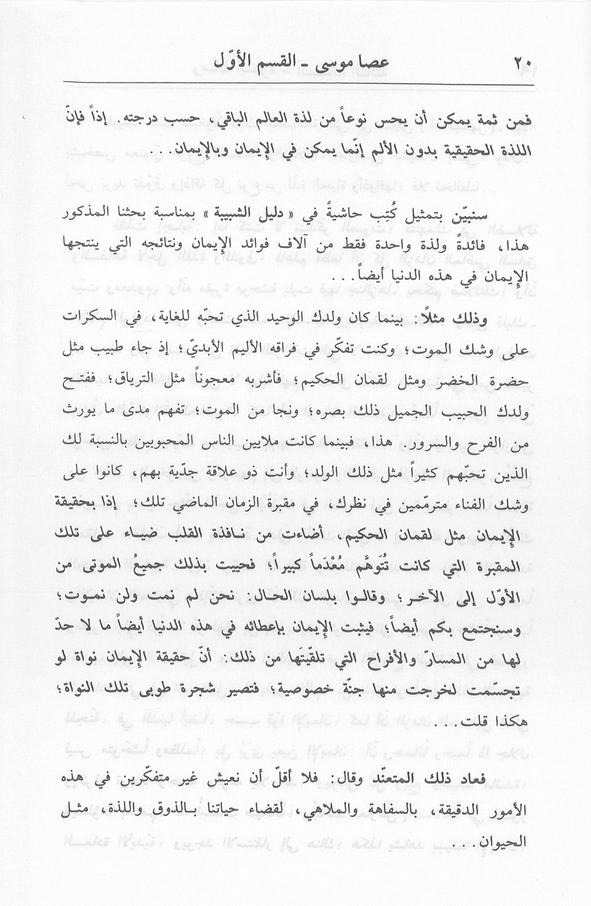 ٢٠ عصا موسى ـ القسم الأوّل
فمن ثمة يمكن أن يحس نوعاً من لذة العالم الباقي، حسب درجته. إذاً فإنّ
اللذة الحقيقية بدون الألم إنّما يمكن في الإيمان وبالإيمان...
سنبيّن بتمثيل كُتِب حاشيةً في « دليل الشبيبة » بمناسبة بحثنا المذكور
هذا، فائدةً ولذة واحدة فقط من آلاف فوائد الإيمان ونتائجه التي ينتجها
الإيمان في هذه الدنيا أيضاً...
وذلك مثلاً: بينما كان ولدك الوحيد الذي تحبّه للغاية، في السكرات
على وشك الموت؛ وكنت تفكّر في فراقه الأليم الأبديّ؛ إذ جاء طبيب مثل
حضرة الخضر ومثل لقمان الحكيم؛ فأشربه معجوناً مثل الترياق؛ ففتح
ولدك الحبيب الجميل ذلك بصره؛ ونجا من الموت؛ تفهم مدى ما يورث
من الفرح والسرور. هذا، فبينما كانت ملايين الناس المحبوبين بالنسبة لك
الذين تحبّهم كثيراً مثل ذلك الولد؛ وأنت ذو علاقة جدّية بهم، كانوا على
وشك الفناء مترمّمين في نظرك، في مقبرة الزمان الماضي تلك؛ إذا بحقيقة
الإيمان مثل لقمان الحكيم، أضاءت من نافذة القلب ضياء على تلك
المقبرة التي كانت تُتَوهَّم مُعْدَماً كبيراً؛ فحييت بذلك جميعُ الموتى من
الأوّل إلى الآخر؛ وقالوا بلسان الحال: نحن لم نمت ولن نموت؛
وسنجتمع بكم أيضاً؛ فيثبت الإيمان بإعطائه في هذه الدنيا أيضاً ما لا حدّ
لها من المسارّ والأفراح التي تلقّيتَها من ذلك: أنّ حقيقة الإيمان نواة لو
تجسّمت لخرجت منها جنّة خصوصية؛ فتصير شجرة طوبى تلك النواة؛
هكذا قلت...
فعاد ذلك المتعنّد وقال: فلا أقلّ أن نعيش غير متفكّرين في هذه
الأمور الدقيقة، بالسفاهة والملاهي، لقضاء حياتنا بالذوق واللذة، مثل
الحيوان...